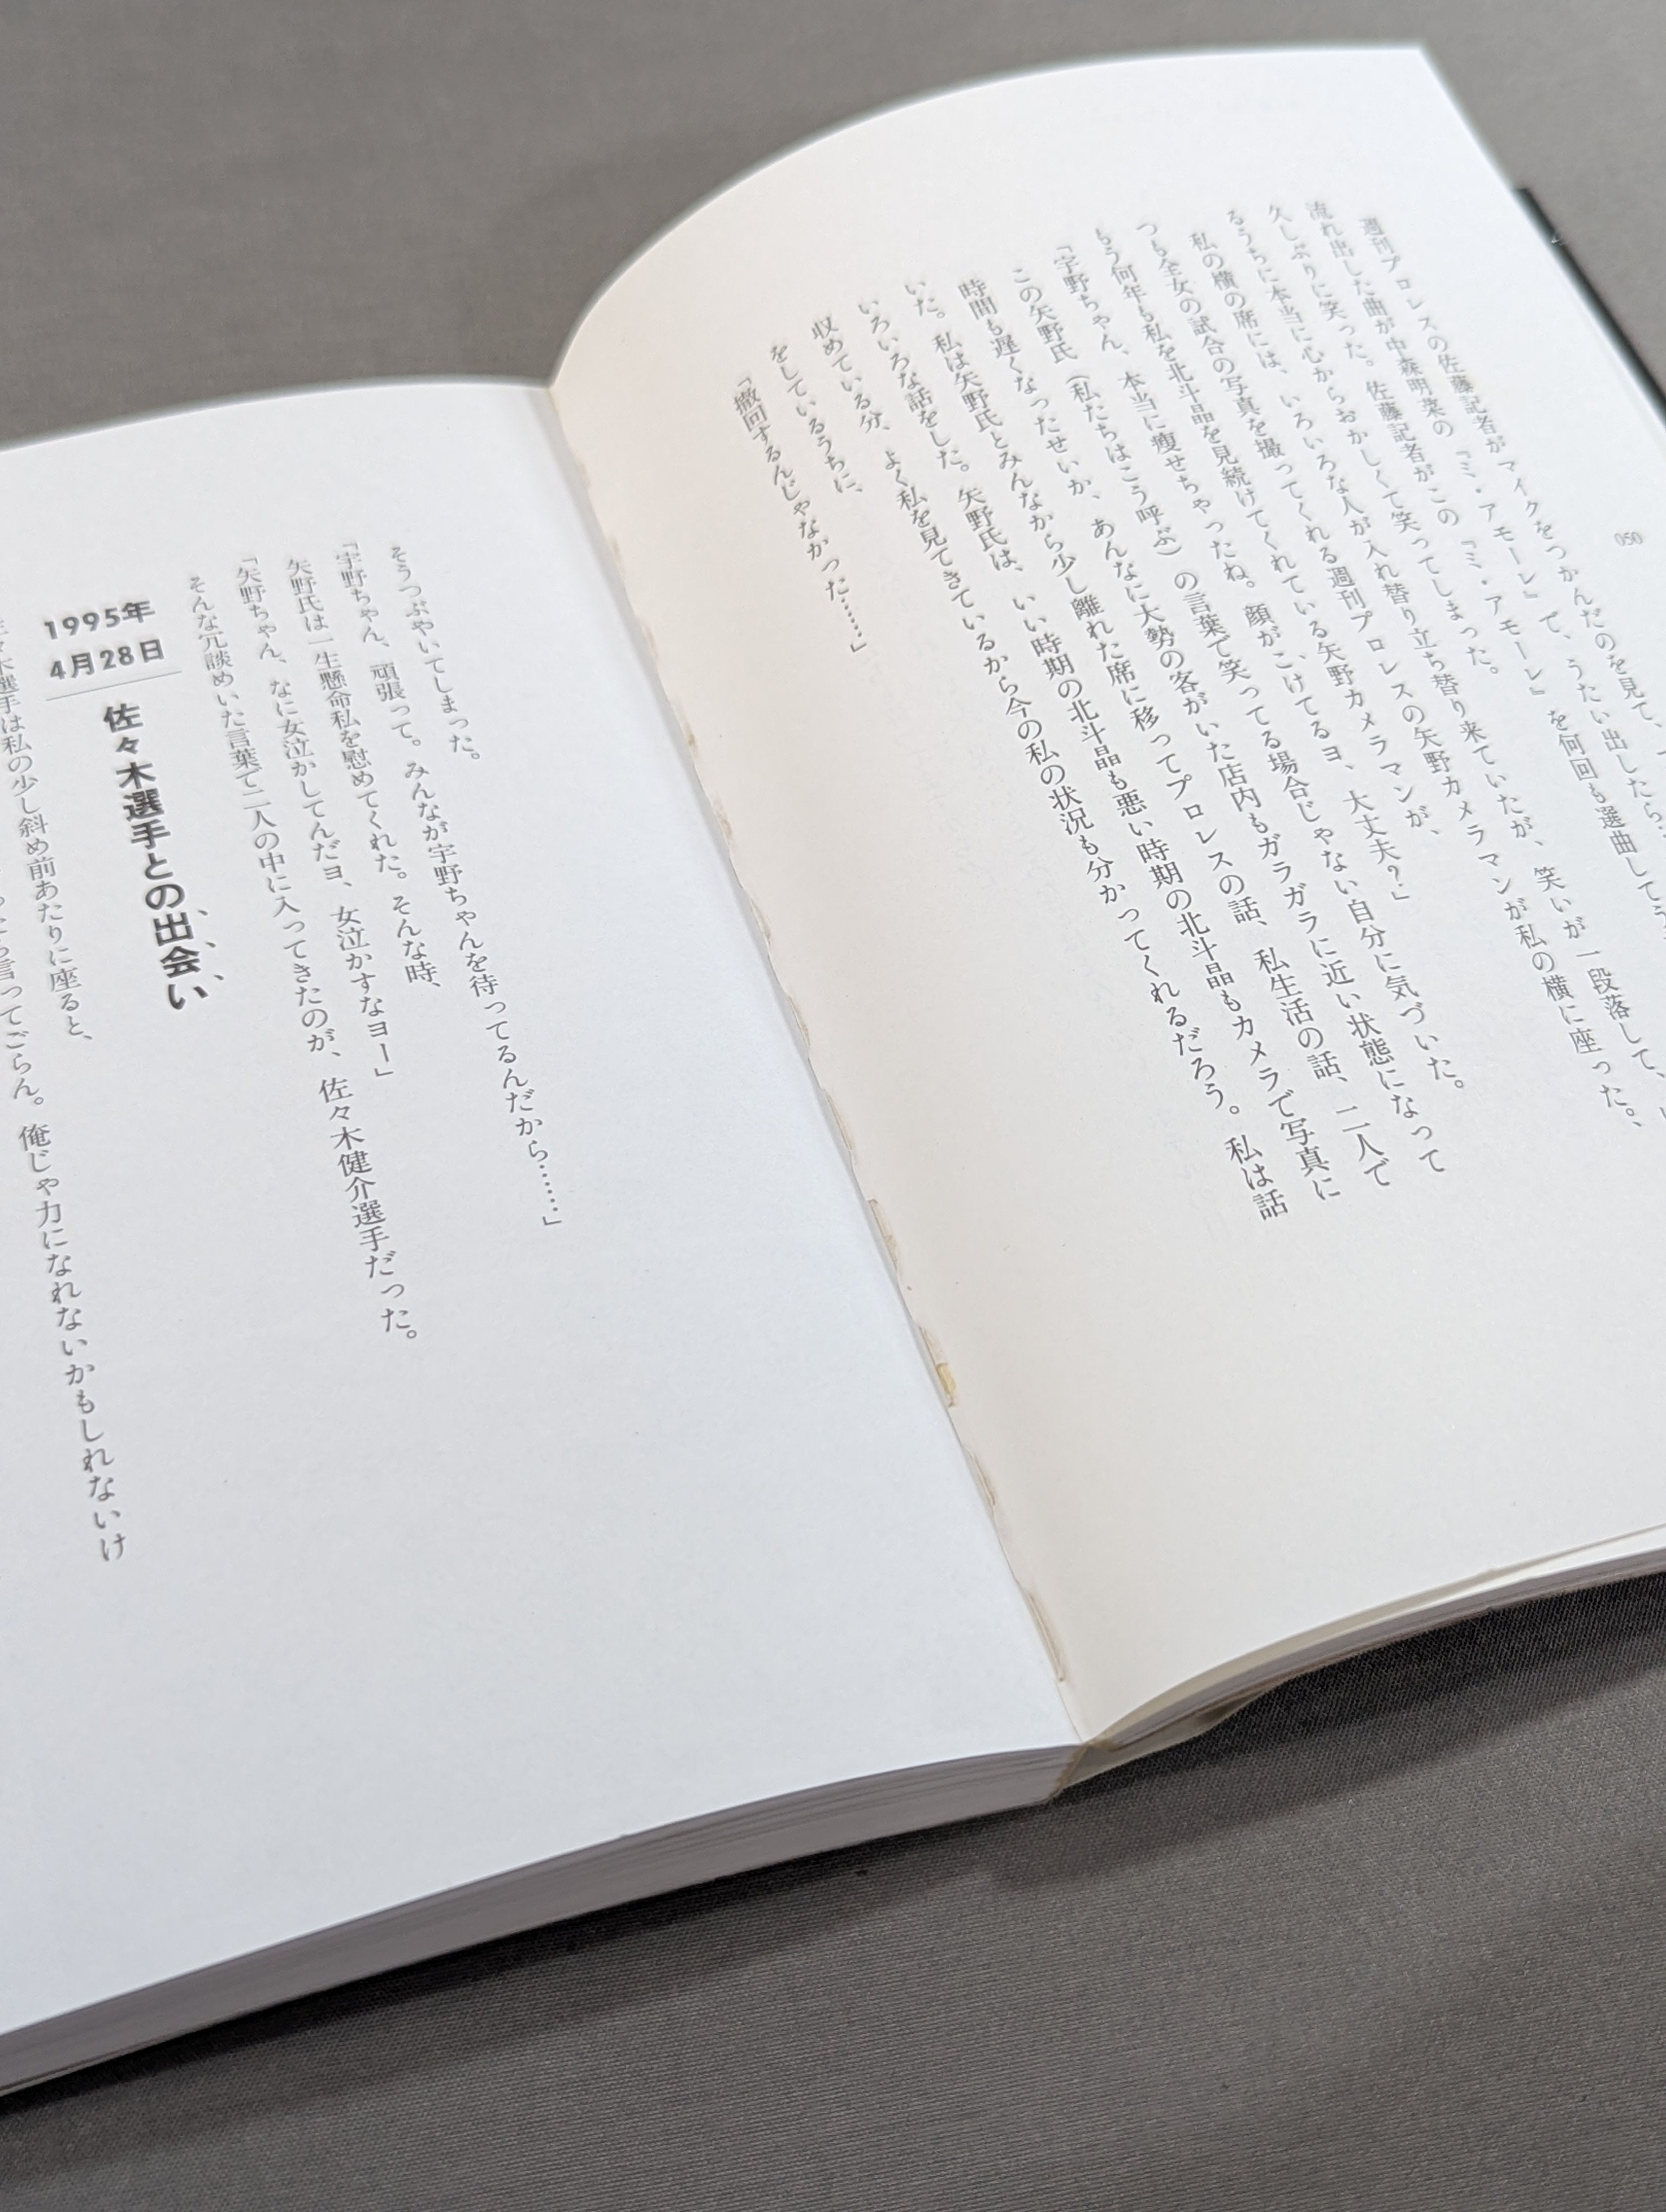 050
週刊プロレスの佐藤記者がマイクをつかんだのを見て、
流れ出した曲が中森明菜の『ミ・アモーレ』で、うたい出したら…
久しぶりに笑った。佐藤記者がこの『ミ・アモーレ』を何回も選曲してう
るうちに本当に心からおかしくて笑ってしまった。
私の横の席には、いろいろな人が入れ替り立ち替り来ていたが、笑いが一段落して、い
つも全女の試合の写真を撮ってくれる週刊プロレスの矢野カメラマンが私の横に座った。
もう何年も私を北斗晶を見続けてくれている矢野カメラマンが、
「宇野ちゃん、本当に痩せちゃったね。顔がこけてるヨ、大丈夫？」
この矢野氏（私たちはこう呼ぶ）の言葉で笑ってる場合じゃない自分に気づいた。
時間も遅くなったせいか、あんなに大勢の客がいた店内もガラガラに近い状態になって
いた。私は矢野氏とみんなから少し離れた席に移ってプロレスの話、私生活の話、二人で
いろいろな話をした。矢野氏は、いい時期の北斗晶も悪い時期の北斗晶もカメラで写真に
収めている分、よく私を見てきているから今の私の状況も分かってくれるだろう。私は話
をしているうちに、
「撤回するんじゃなかった……」
そうつぶやいてしまった。
「宇野ちゃん、頑張って。みんなが宇野ちゃんを待ってるんだから……」
矢野氏は一生懸命私を慰めてくれた。そんな時、
「矢野ちゃん、なに女泣かしてんだヨ、女泣かすなヨー」
そんな冗談めいた言葉で二人の中に入ってきたのが、佐々木健介選手だった。
1995年
4月28日
佐々木選手との出会い
々木選手は私の少し斜め前あたりに座ると、
言ってごらん。俺じゃ力になれないかもしれないけ